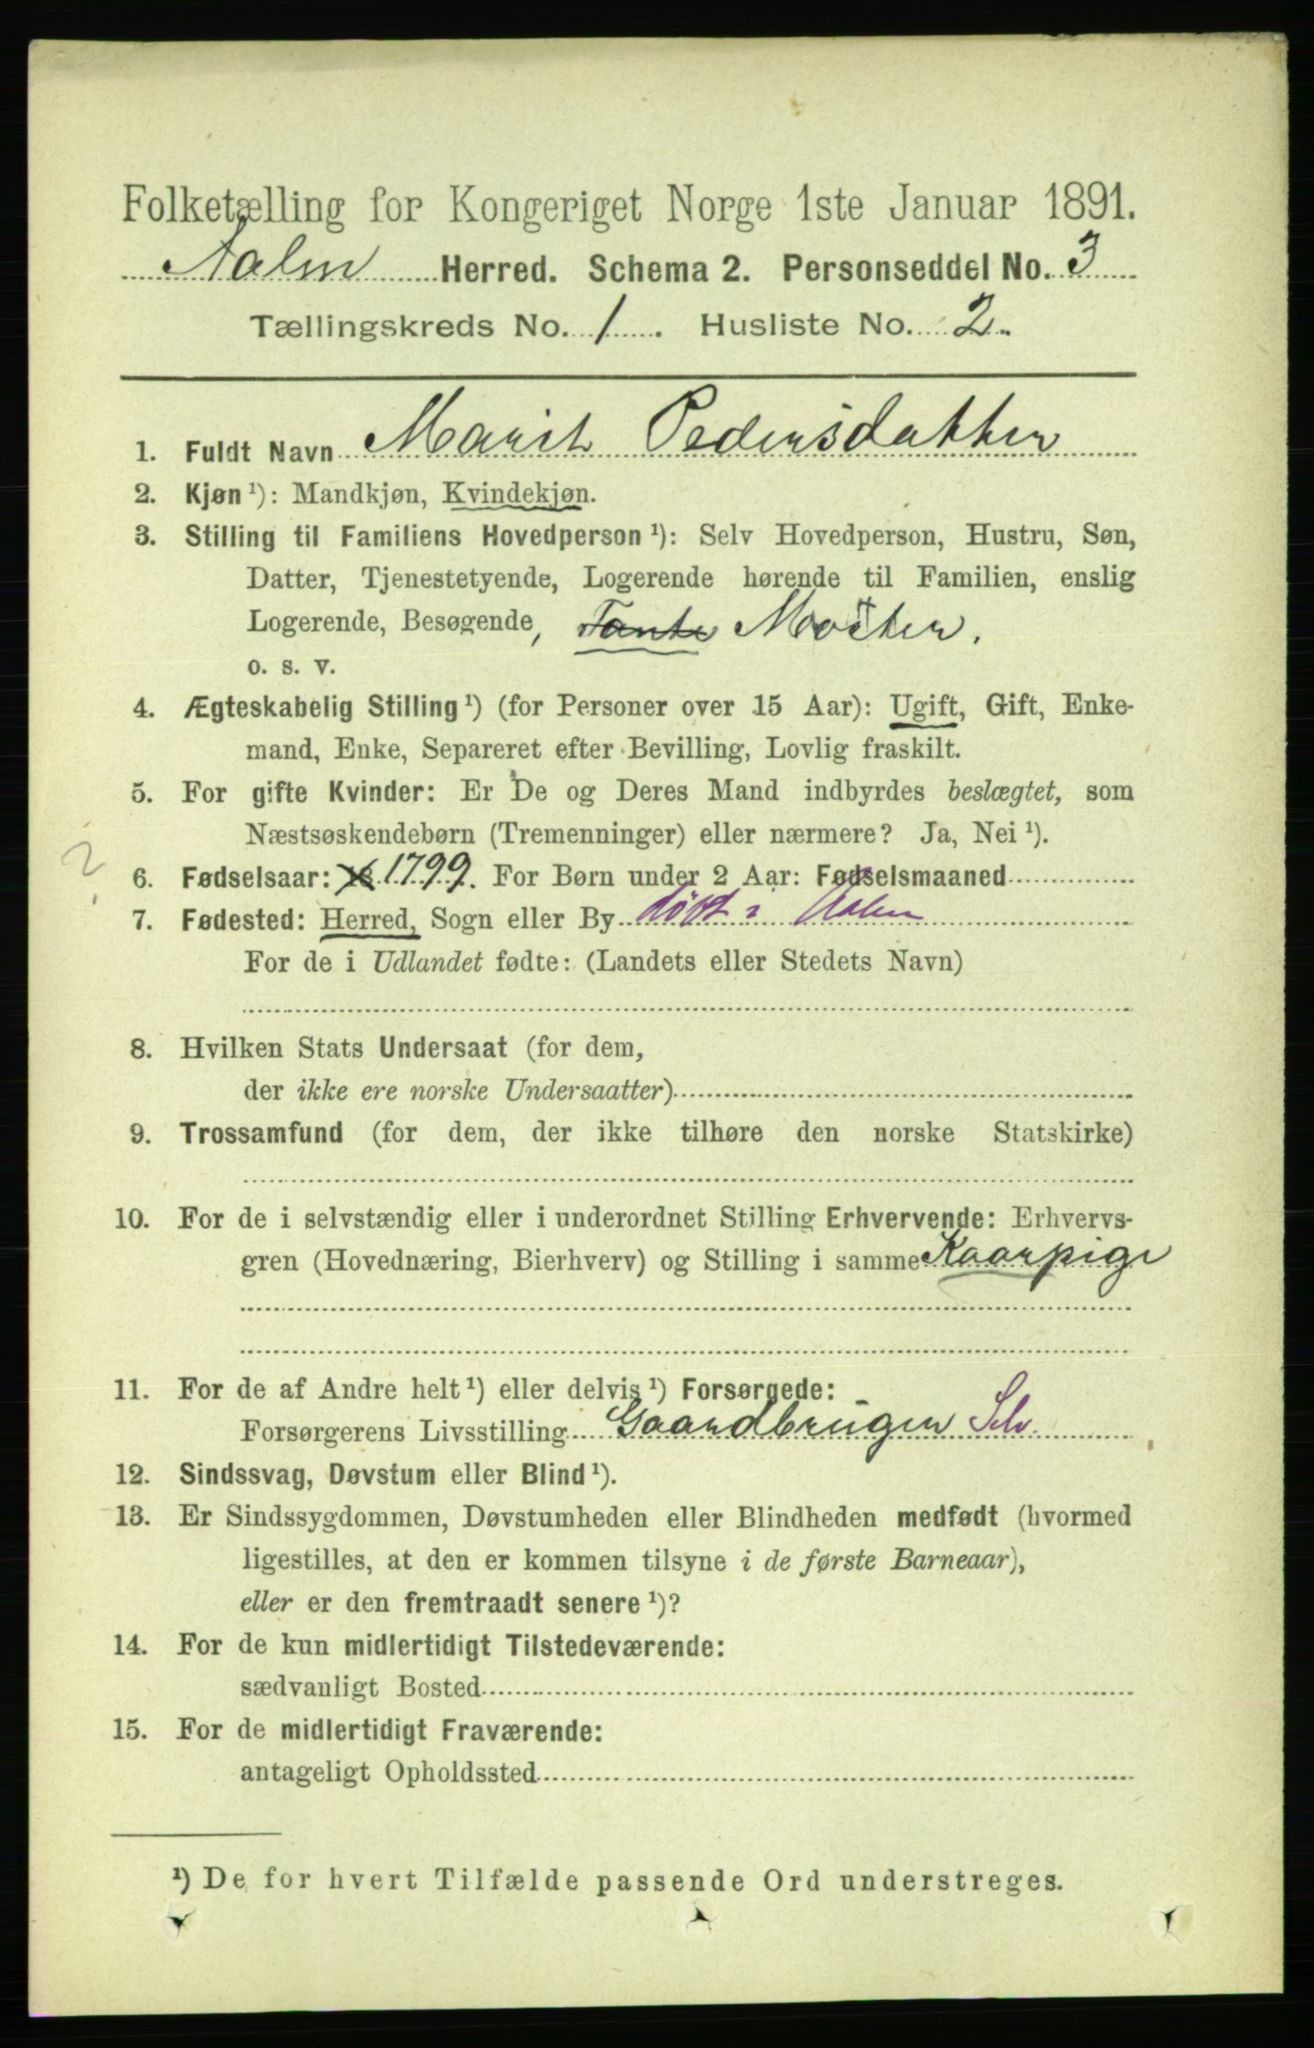 Folketælling for Kongeriget Norge 1ste Januar 1891.
Aalen Herred. Schema 2. Personseddel No. 3
Tællingskreds No. 1. Husliste No. 2.
1. Fuldt Navn Marit Pedersdatter
2. Kjøn ¹): Mandkjøn, Kvindekjøn.
3. Stilling til Familiens Hovedperson ¹): Selv Hovedperson, Hustru, Søn,
Datter, Tjenestetyende, Logerende hørende til Familien, enslig
Logerende, Besøgende, Tante Moster.
o. s. v.
4. Ægteskabelig Stilling ¹) (for Personer over 15 Aar): Ugift, Gift, Enke-
mand, Enke, Separeret efter Bevilling, Lovlig fraskilt.
5. For gifte Kvinder: Er De og Deres Mand indbyrdes beslægtet, som
Næstsøskendebørn (Tremenninger) eller nærmere? Ja, Nei ¹).
? 6. Fødselsaar: 18 1799. For Børn under 2 Aar: Fødselsmaaned
7. Fødested: Herred, Sogn eller By født i Aalen
For de i Udlandet fødte: (Landets eller Stedets Navn)
8. Hvilken Stats Undersaat (for dem,
der ikke ere norske Undersaatter)
9. Trossamfund (for dem, der ikke tilhøre den norske Statskirke)
10. For de i selvstændig eller i underordnet Stilling Erhvervende: Erhvervs-
gren (Hovednæring, Bierhverv) og Stilling i samme Kaarpige
11. For de af Andre helt ¹) eller delvis ¹) Forsørgede:
Forsørgerens Livsstilling Gaardbruger Selv
12. Sindssvag, Døvstum eller Blind ¹).
13. Er Sindssygdommen, Døvstumheden eller Blindheden medfødt (hvormed
ligestilles, at den er kommen tilsyne i de første Barneaar),
eller er den fremtraadt senere ¹)?
14. For de kun midlertidigt Tilstedeværende:
sædvanligt Bosted
15. For de midlertidigt Fraværende:
antageligt Opholdssted
¹) De for hvert Tilfælde passende Ord understreges.